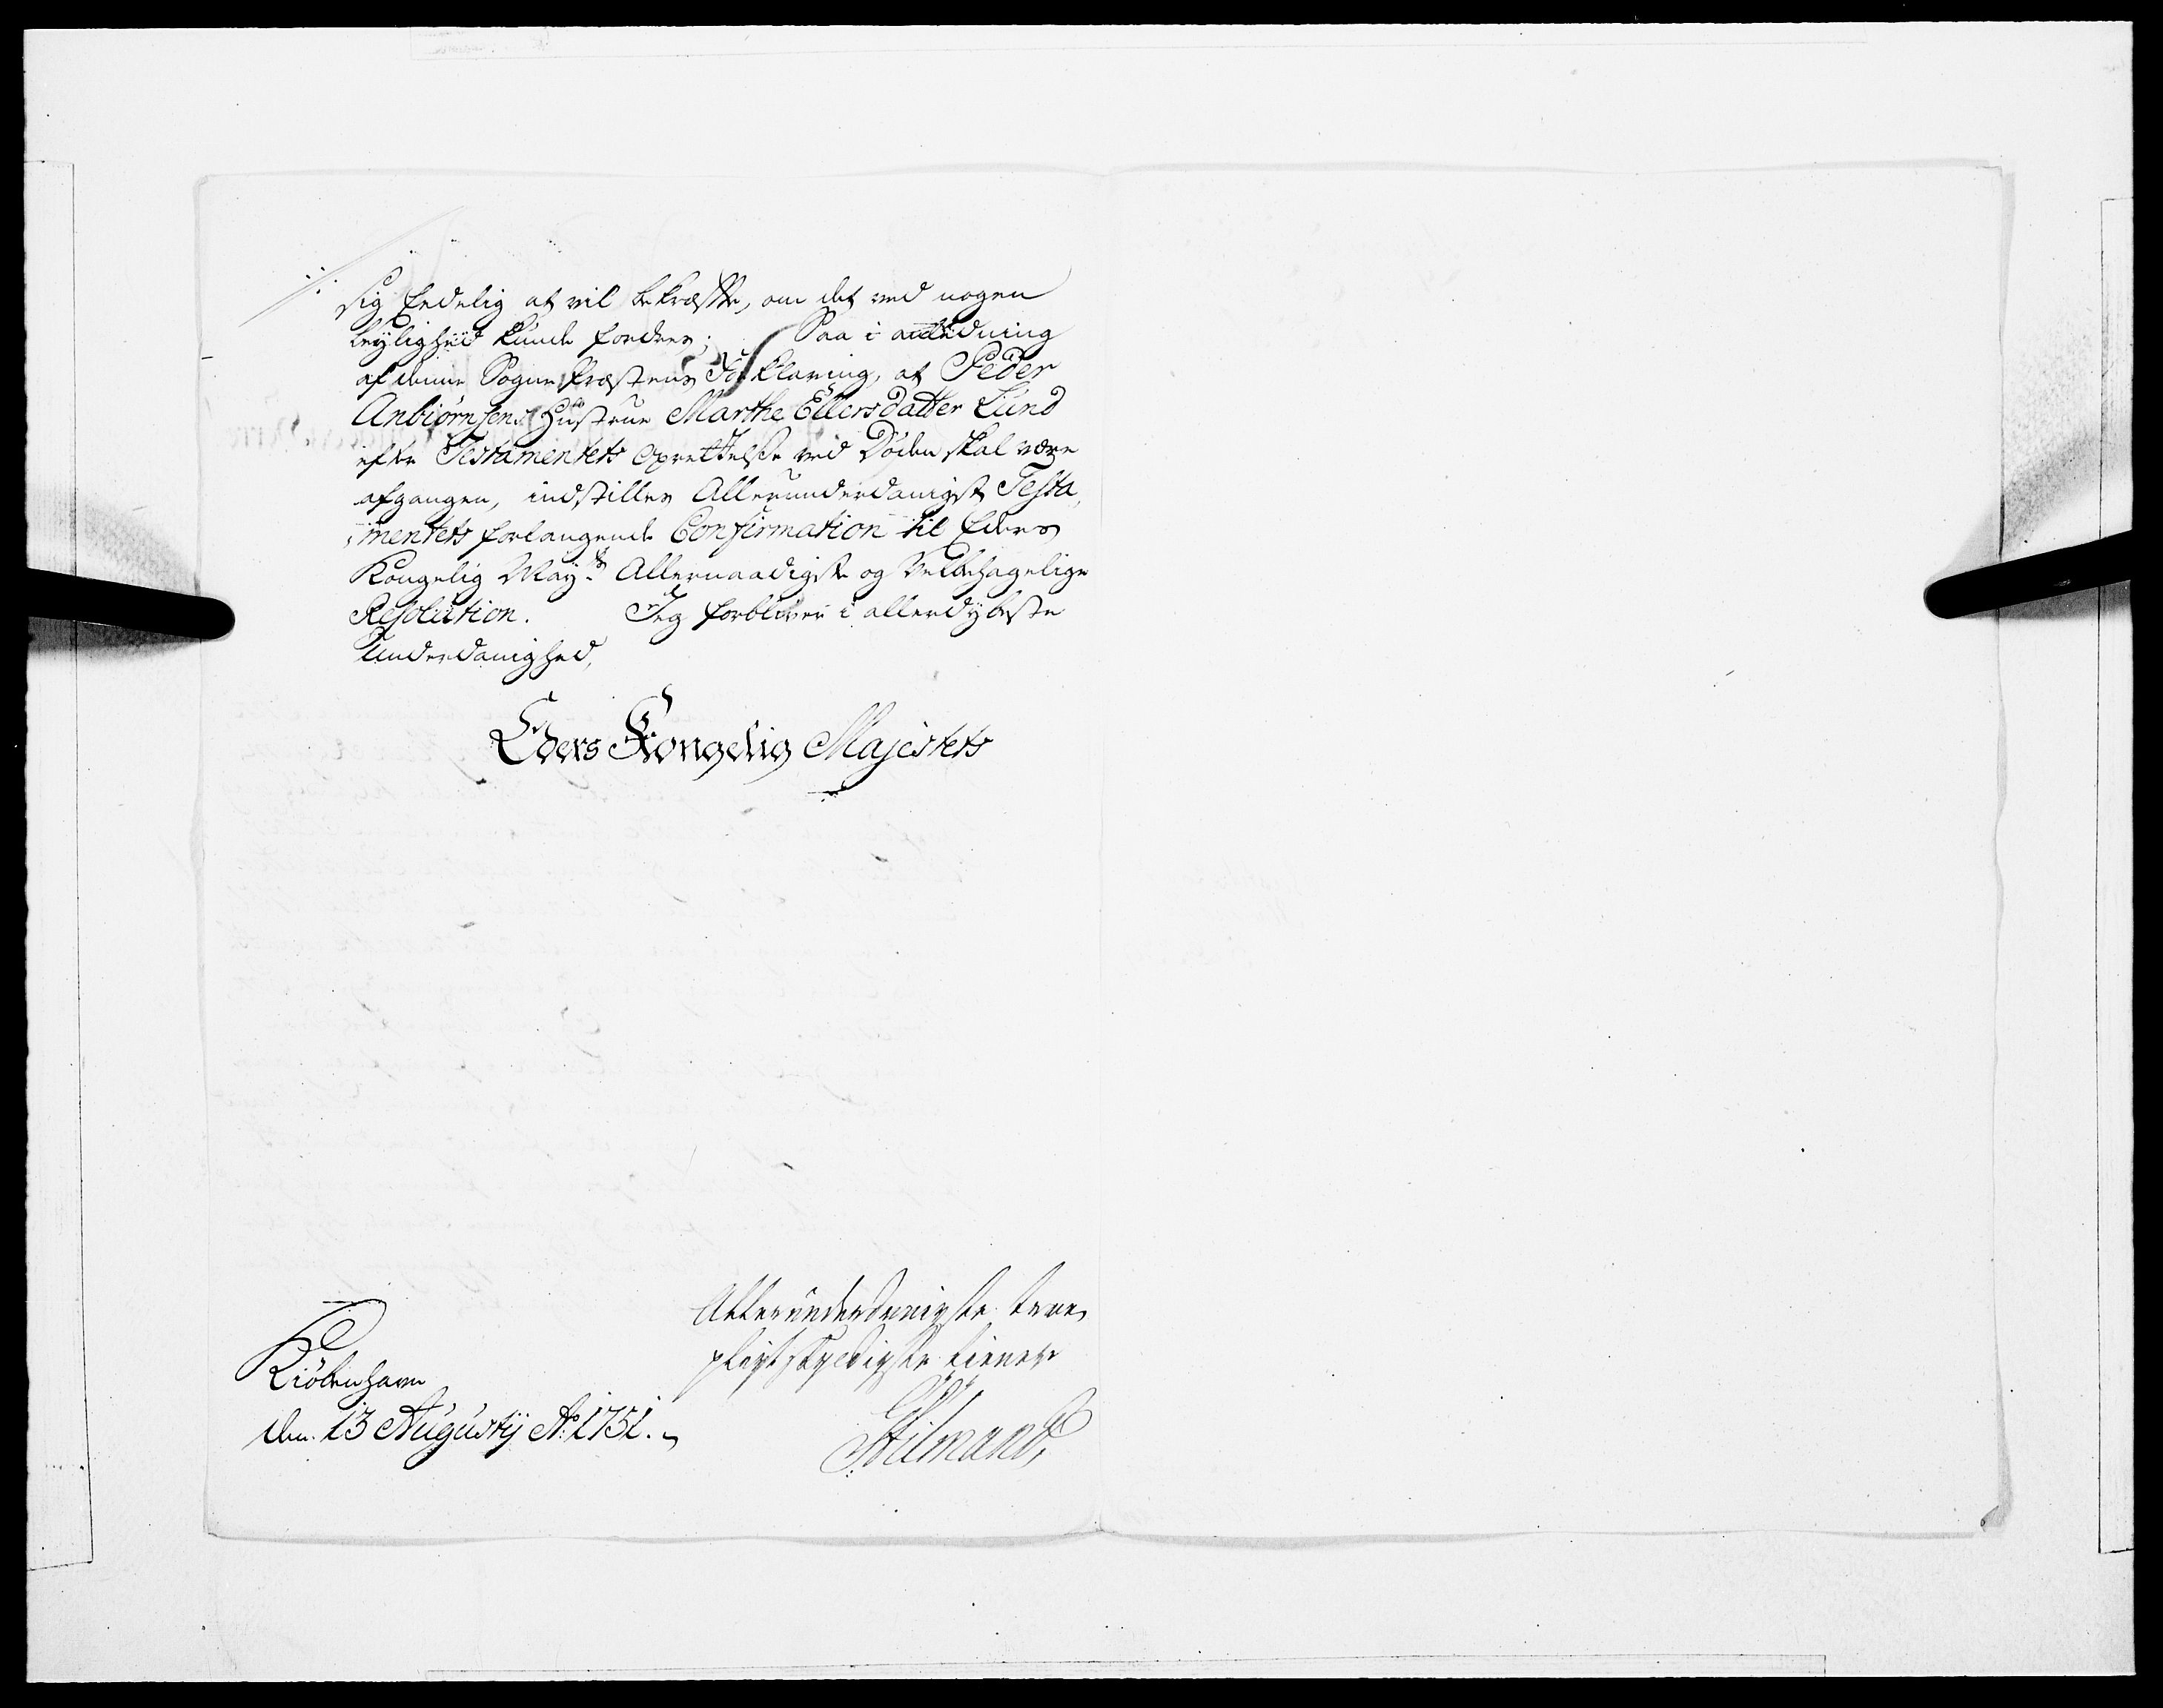 sig Eedelig at vil bekræfte, om det ved nogen
leylighed kunde fordres; Saa i anledning
af denne Sogne Præstens Forklaring, at Peder
Anbiørnsens Hustrue Marthe Ellersdatter Lund
efter Testamentets Oprettelse ved Døden skal være
afgangen, indstilles Allerunderdanigst Testa„
„mentets forlangende Confirmation til Eders
Kongelig May:ts Allernaadigste og Velbehagelige
Resolution. Jeg forbliver i allerdybeste
Underdanighed,
Eders Kongelig Majestets
Allerunderdanigste troe
pligtskyldigste tiener
Kiöbenhavn
den 13 Augustij Ao 1751.